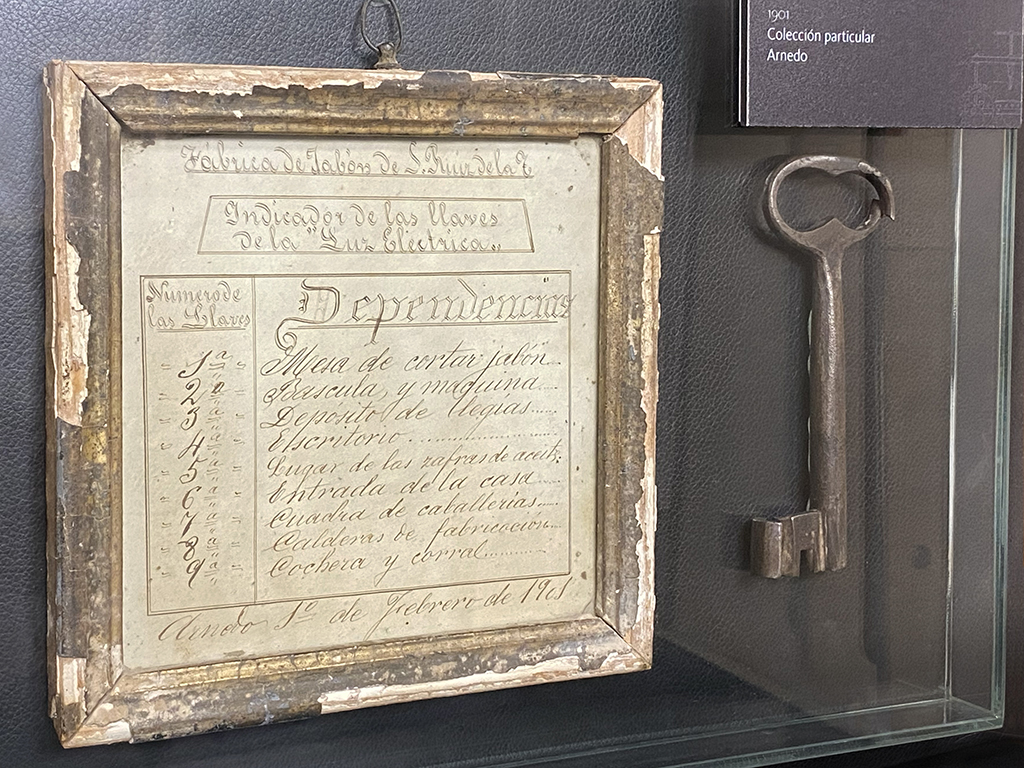 1901
Colección particular
Arnedo
Fábrica de Jabón de S. Ruiz de la T
Indicador de las llaves
de la "Luz Eléctrica„
Número de
las Llaves
Dependencias
" 1ª " Mesa de cortar jabón
" 2ª " Bascula, y maquina
" 3ª " Deposito de legías
" 4ª " Escritorio
" 5ª " Lugar de las zafras de aceite
" 6ª " Entrada de la casa
" 7ª " Cuadra de caballerías
" 8ª " Calderas de fabricacion
" 9ª " Cochera y corral
Arnedo 1º de Febrero de 1901